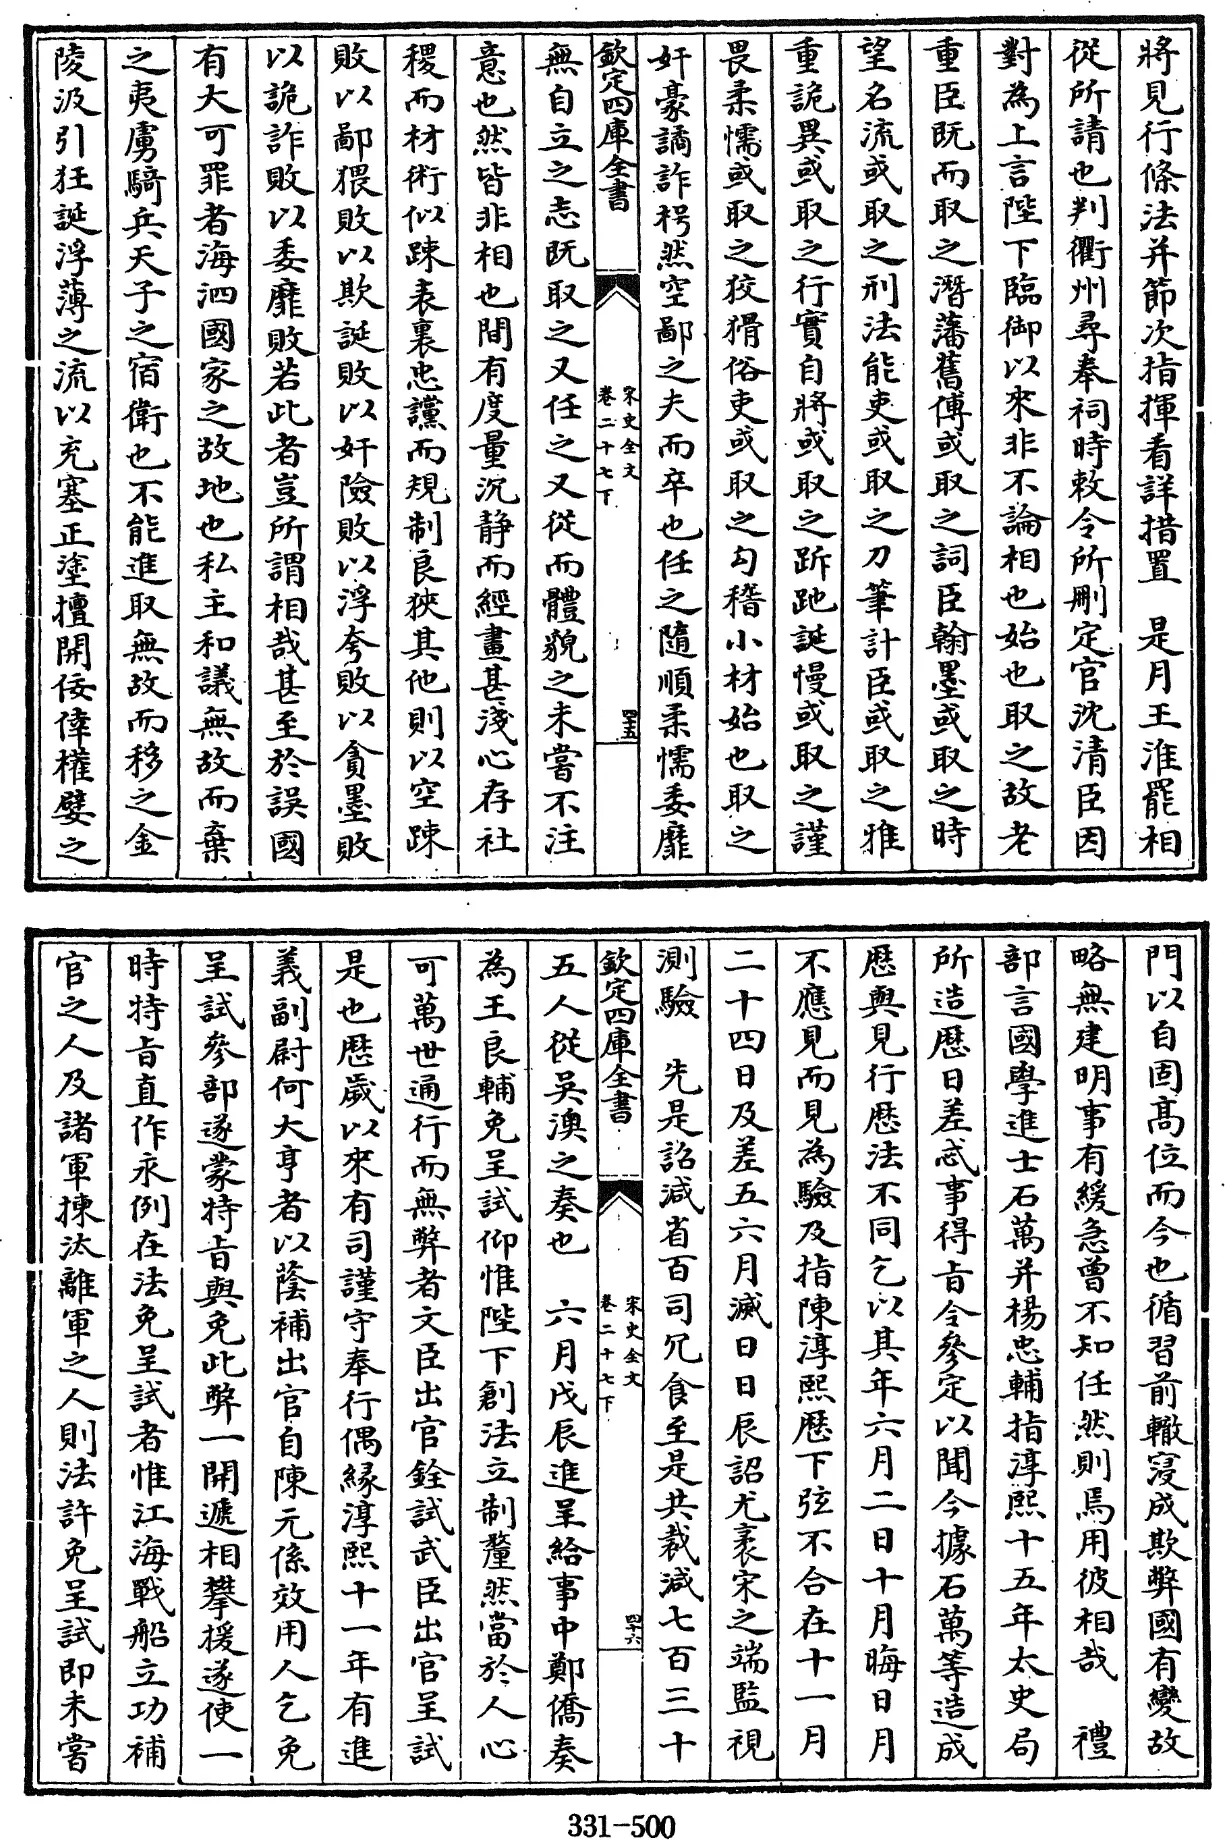 將見行條法并節次指揮看詳措置　是月王淮罷相
從所請也判衢州尋奉祠時敕令所刪定官沈清臣因
對為上言陛下臨御以來非不論相也始也取之故老
重臣既而取之潛藩舊傅或取之詞臣翰墨或取之時
望名流或取之刑法能吏或取之刀筆計臣或取之雅
重詭異或取之行實自將或取之跅跑誕慢或取之謹
畏柔懦或取之狡猾俗吏或取之勾稽小材始也取之
奸豪譎詐枵然空鄙之夫而卒也任之隨順柔懦委靡
欽定四庫全書
宋史全文
卷二十七下
四十五
無自立之志既取之又任之又從而體貌之未嘗不注
意也然皆非相也間有度量沉静而經畫甚淺心存社
稷而材術似踈表裏忠讜而規制良狹其他則以空踈
敗以鄙猥敗以欺誕敗以奸險敗以浮夸敗以貪墨敗
以詭詐敗以委靡敗若此者豈所謂相哉甚至於誤國
有大可罪者海泗國家之故地也私主和議無故而棄
之夷虜騎兵天子之宿衛也不能進取無故而移之金
陵汲引狂誕浮薄之流以充塞正塗擅開佞倖權嬖之
門以自固髙位而今也循習前轍寖成欺弊國有變故
略無建明事有緩急曾不知任然則焉用彼相哉　禮
部言國學進士石萬并楊忠輔指淳熙十五年太史局
所造厯日差忒事得旨令參定以聞今據石萬等造成
厯與見行厯法不同乞以其年六月二日十月晦日月
不應見而見為驗及指陳淳熙厯下弦不合在十一月
二十四日及差五六月滅日日辰詔尤袤宋之端監視
測驗　先是詔減省百司冗食至是共裁減七百三十
欽定四庫全書
宋史全文
卷二十七下
四十六
五人從吳澳之奏也　六月戊辰進呈給事中鄭僑奏
為王良輔免呈試仰惟陛下創法立制釐然當於人心
可萬世通行而無弊者文臣出官銓試武臣出官呈試
是也厯歲以來有司謹守奉行偶緣淳熙十一年有進
義副尉何大亨者以蔭補出官自陳元係效用人乞免
呈試參部遂蒙特旨與免此弊一開遞相攀援遂使一
時特旨直作永例在法免呈試者惟江海戰船立功補
官之人及諸軍揀汰離軍之人則法許免呈試即未嘗
331-500